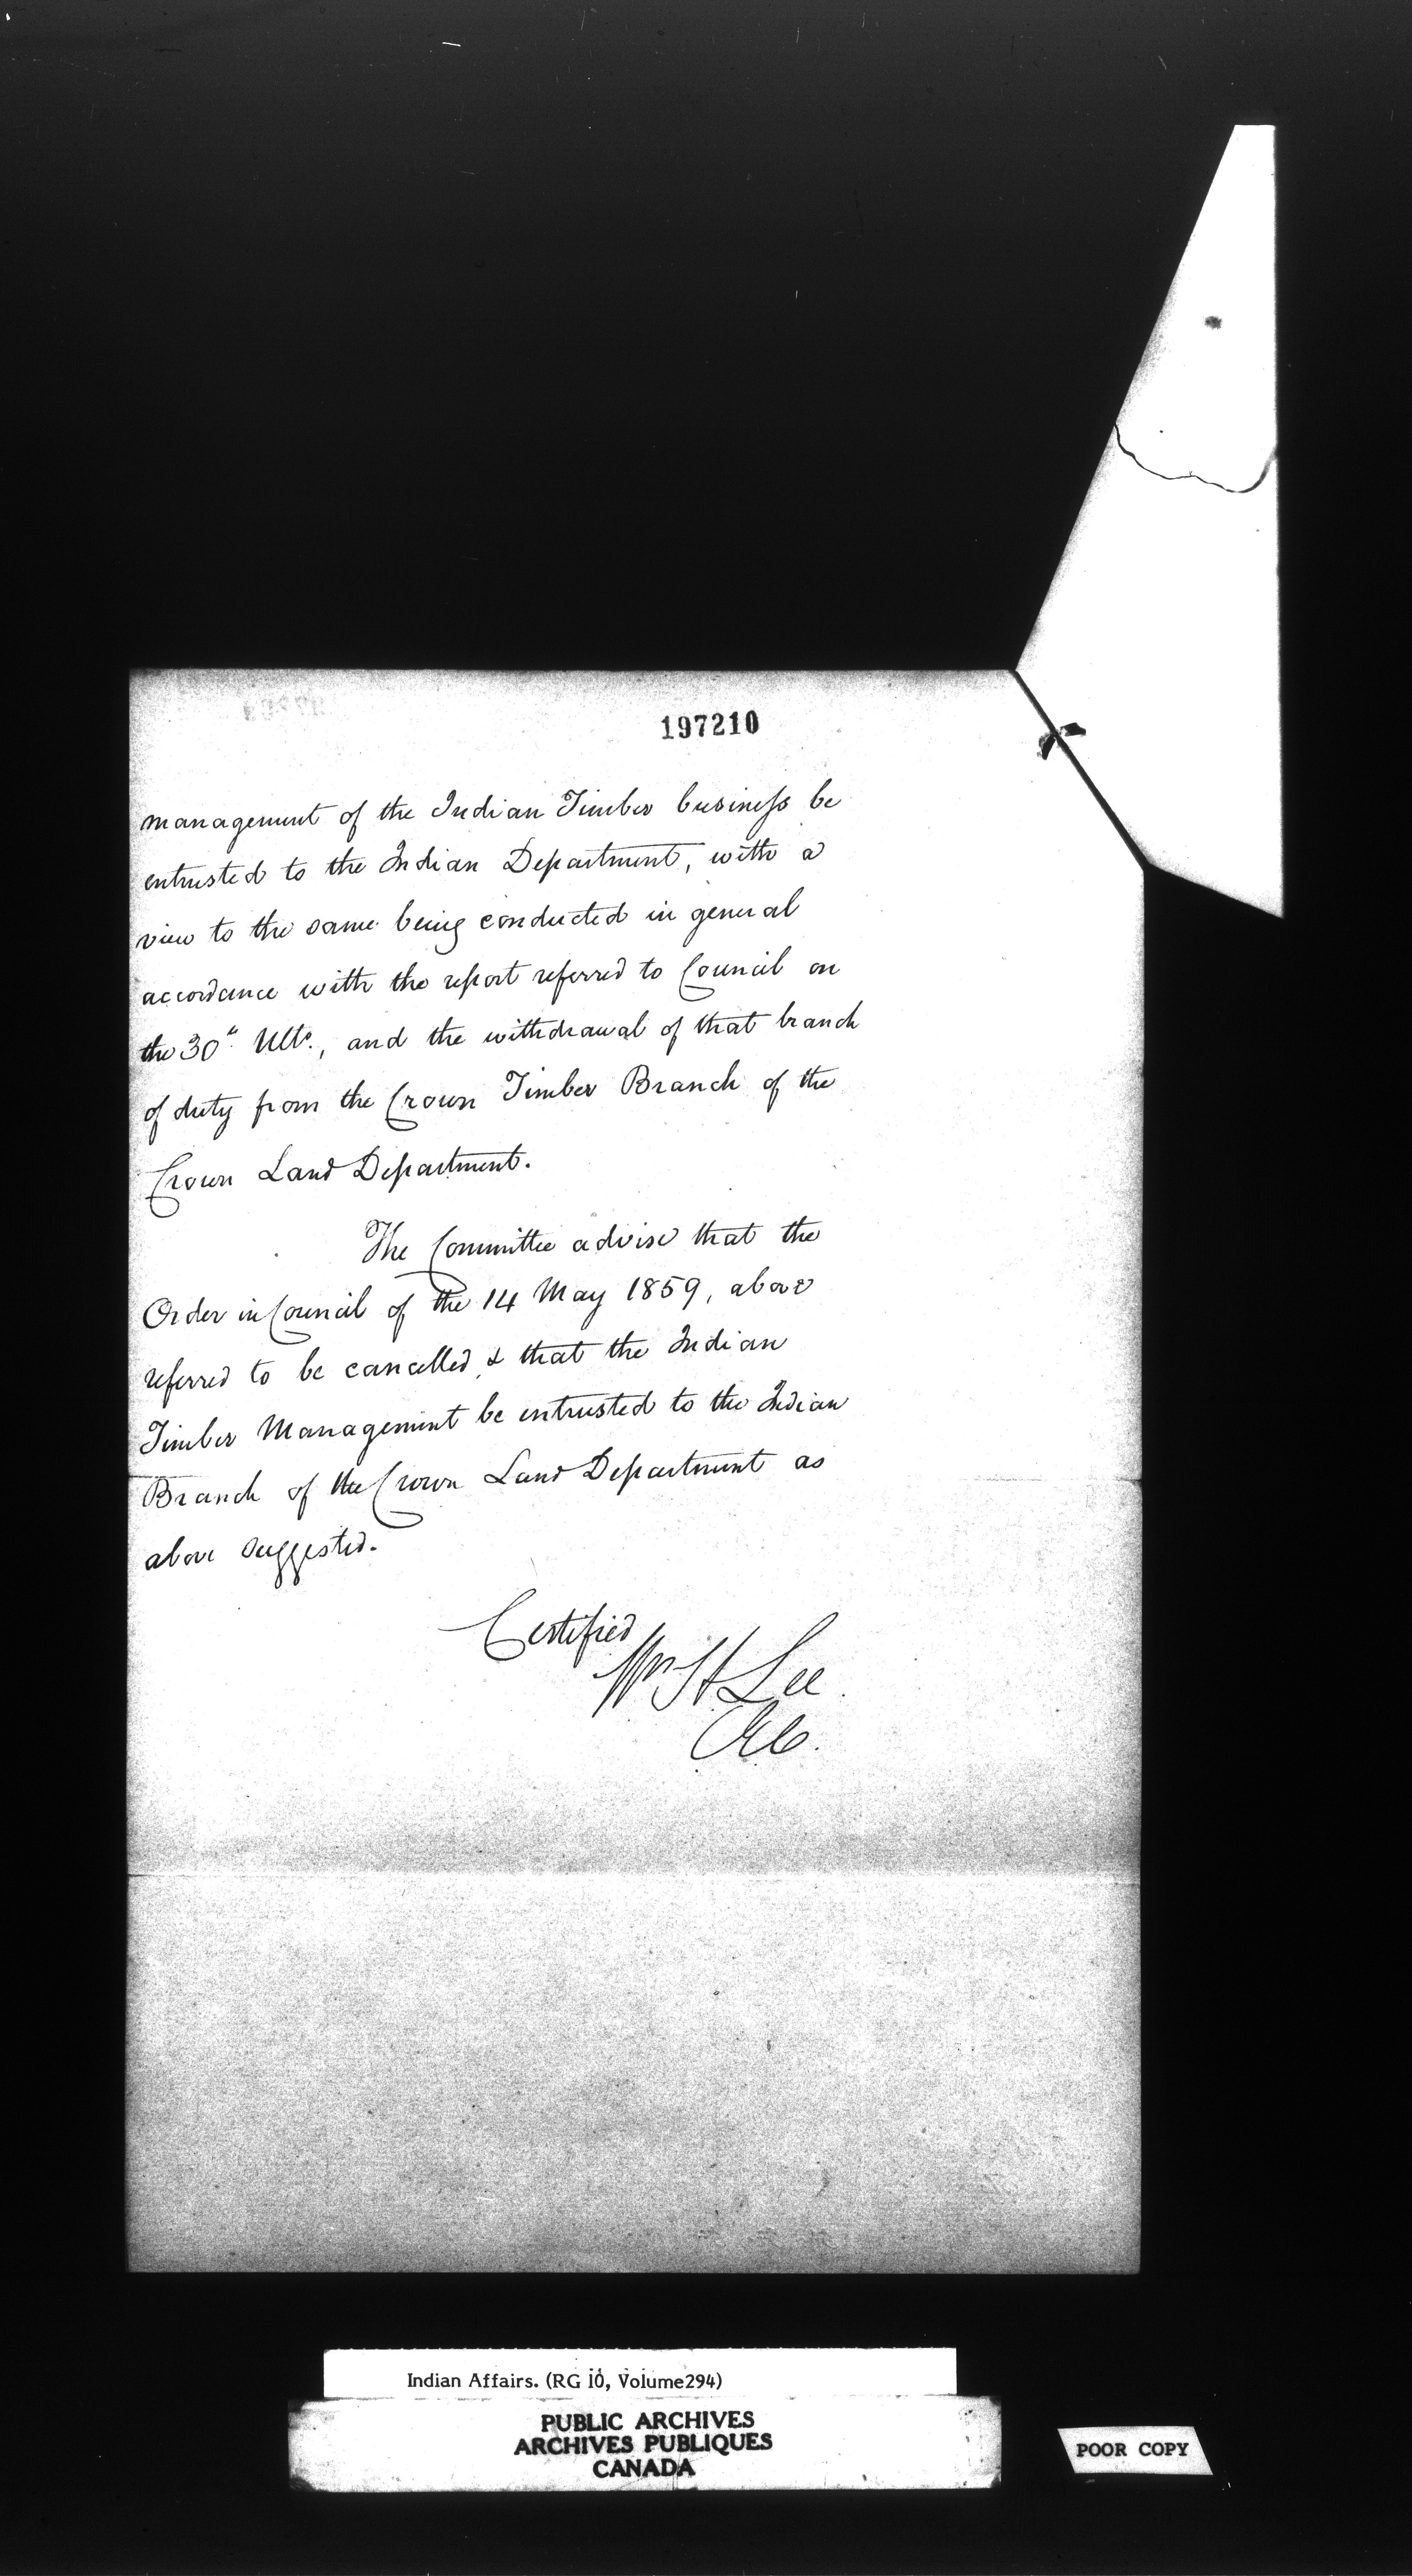 197210
management of the Indian Timber business be
entrusted to the Indian Department, with a
view to the same being conducted in general
accordance with the report referred to Council on
the 30th Ulto., and the withdrawal of that branch
of duty from the Crown Timber Branch of the
Crown Land Department.
The Committee advise that the
Order in Council of the 14 May 1859, above
referred to be cancelled, & that the Indian
Timber Management be entrusted to the Indian
Branch of the Crown Land Department as
above suggested.
Certified
Wm H Lee
Indian Affairs. (RG 10, Volume294)
PUBLIC ARCHIVES
ARCHIVES PUBLIQUES
CANADA
POOR COPY